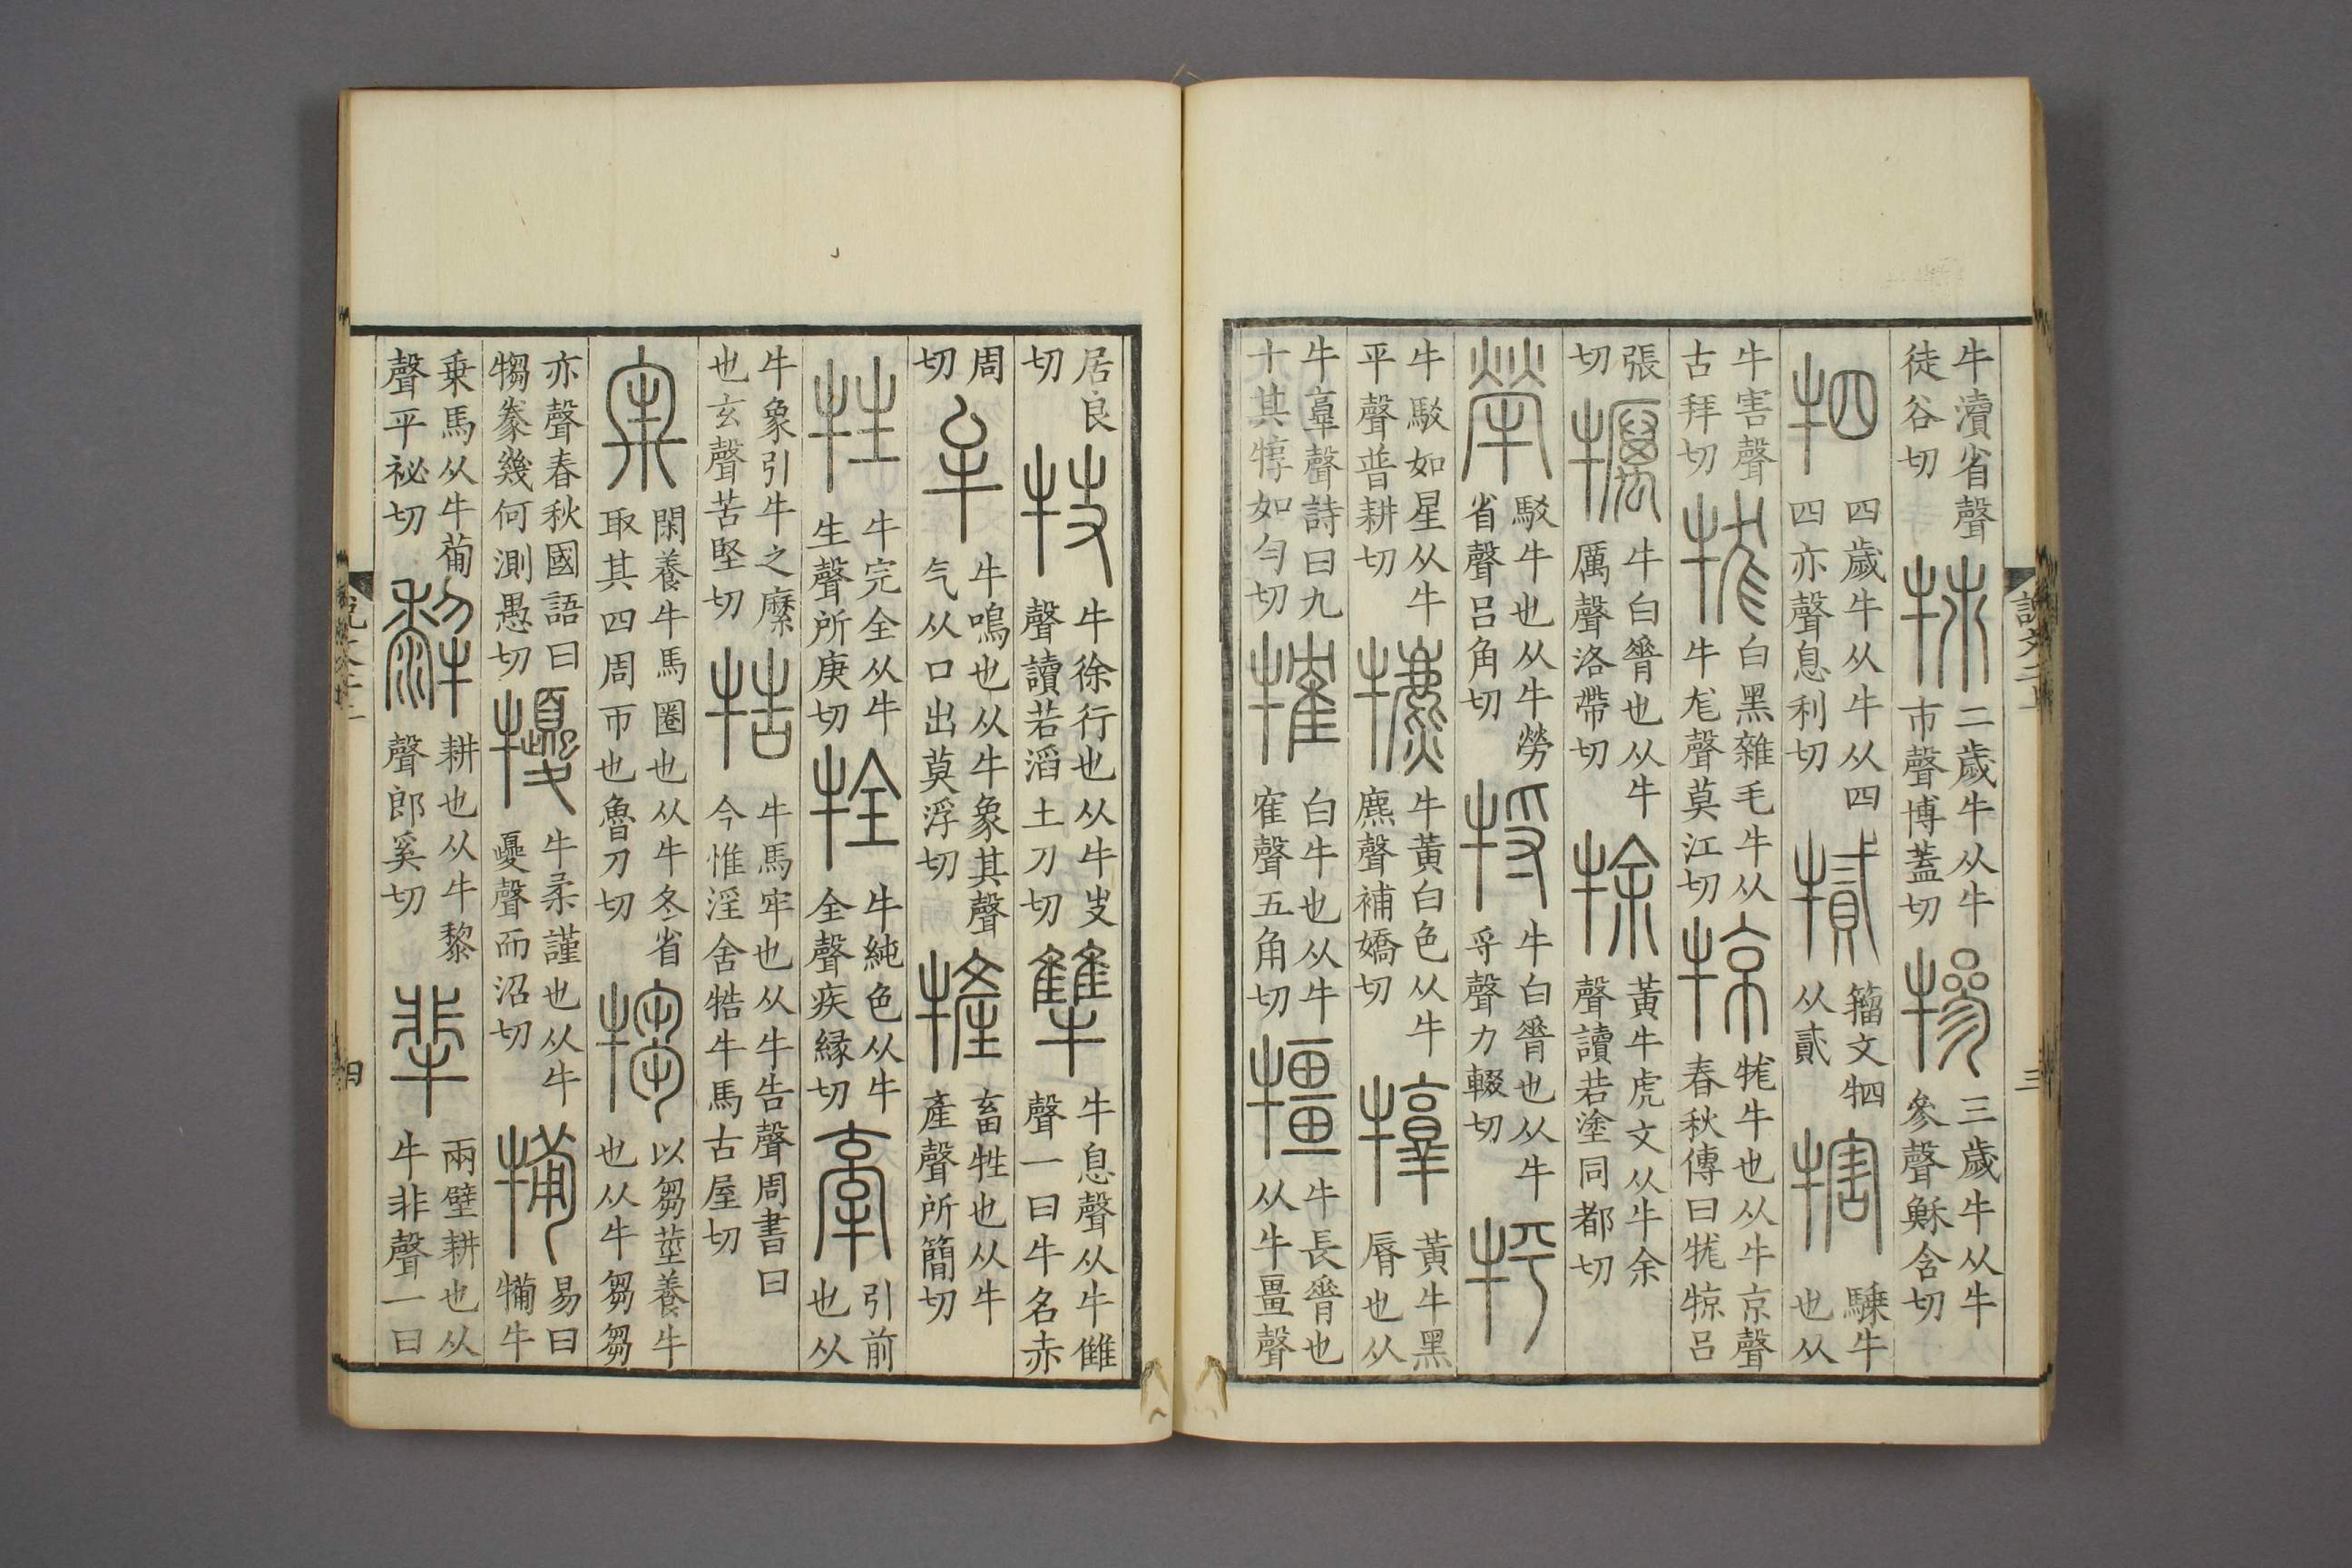 牛瀆省聲徒谷切 㸬 二歲牛从牛巿聲博蓋切 犙 三歲牛从牛參聲穌含切
牭 四歲牛从牛从四四亦聲息利切 籒文牭从貳 犗 騬牛也从
牛害聲古拜切 牻 白黑雜毛牛从牛尨聲莫江切 㹁 牻牛也从牛京聲春秋傳曰牻㹁呂
張切 犡 牛白脊也从牛厲聲洛帶切 黃牛虎文从牛余聲讀若塗同都切
犖 駁牛也从牛勞省聲呂角切 牛白脊也从牛寽聲力輟切 㸹
牛駁如星从牛平聲普耕切 犥 牛黃白色从牛麃聲補嬌切 犉 黃牛黑脣也从
牛𦎫聲詩曰九十其犉如勻切 㹊 白牛也从牛隺聲五角切 牛長脊也从牛畺聲
居良切 牛徐行也从牛㞢聲讀若滔土刀切 犨 牛息聲从牛雔聲一曰牛名赤
周切 牟 牛鳴也从牛象其聲气从口出莫浮切 㹌 畜牲也从牛產聲所簡切
牲 牛完全从牛生聲所庚切 牷 牛純色从牛全聲疾緣切 牽 引前也从
牛象引牛之縻也玄聲苦堅切 牿 牛馬牢也从牛告聲周書曰今惟淫舍牿牛馬古屋切
牢 閑養牛馬圈也从牛冬省取其四周帀也魯刀切 犓 以芻莖養牛也从牛芻芻
亦聲春秋國語曰犓豢幾何測愚切 㹛 牛柔謹也从牛夒聲而沼切 犕 易曰犕牛
乗馬从牛𤰈聲平祕切 犂 耕也从牛黎聲郎奚切 㹃 兩壁耕也从牛非聲一曰
說文二上 三
說文二上 四